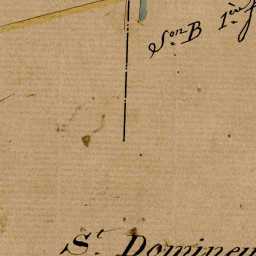 S.on B 1.ère
S.t Domineu